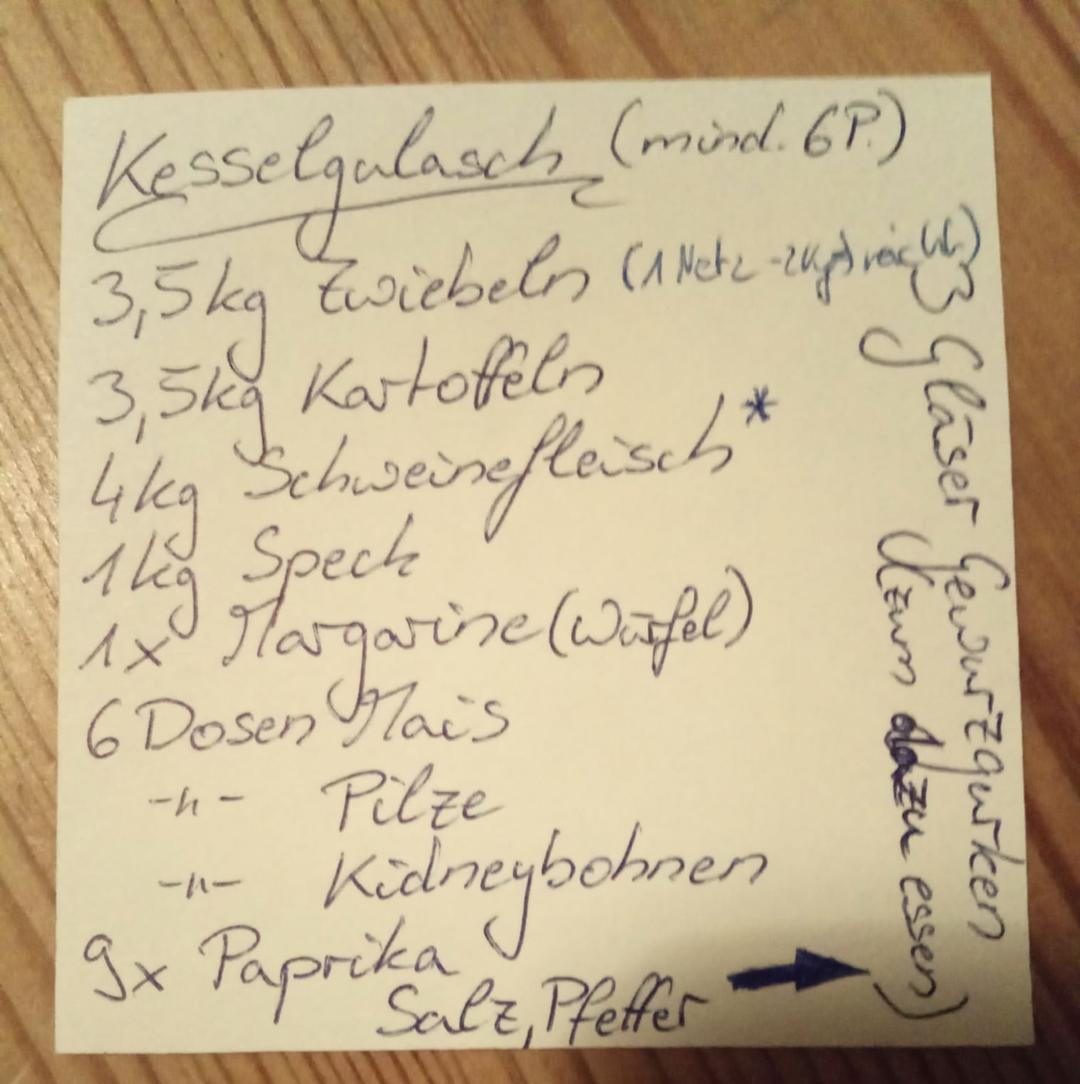 Kesselgulasch (mind. 6P.)
3,5kg Zwiebeln (1 Netz - 2kg) reicht)
3,5kg Kartoffeln
4kg Schweinefleisch*
1kg Speck
1x Margarine (Würfel)
6 Dosen Mais
-"- Pilze
-"- Kidneybohnen
9x Paprika
Salz, Pfeffer
3 Gläser Gewürzgurken
(zum dazu essen)